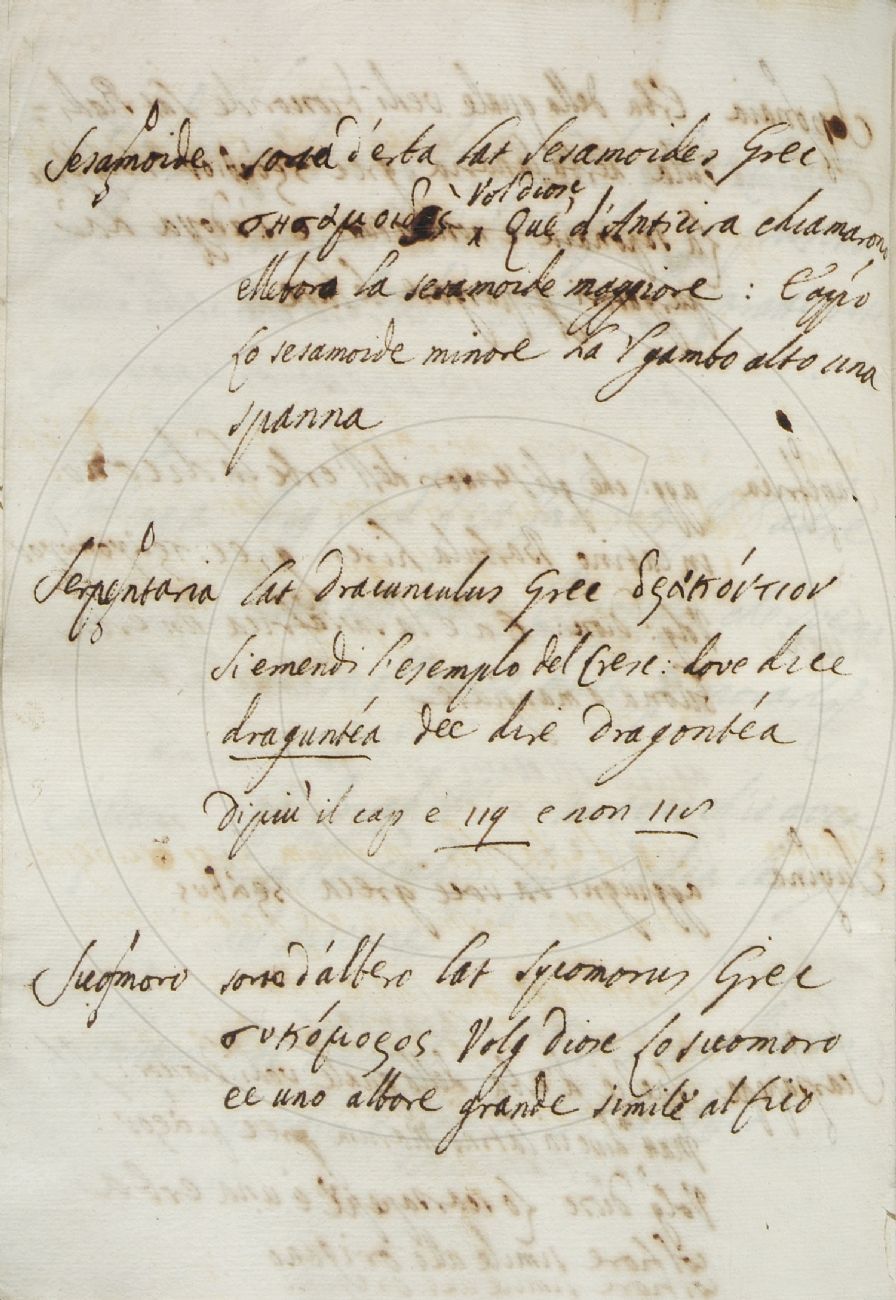 Sesamoide sorta d'erba Lat Sesamoides Grec
σησαμοιδὲς Vol diosc Que d'Anticira chiamarono
ellebora la sesamoide maggiore : E appo
Lo sesamoide minore ha gambo alto una
spanna
Serpentaria Lat Dracunculus Grec δρακόντιον
Si emendi l'esemplo del Cresc: dove dice
draguntéa dee dire Dragontéa
Di più il cap è 119 e non 118
Sicomoro sorte d'albero Lat Sycomorus Grec
συκόμορος Volg Diosc Lo sicomoro
ee uno albore grande simile al fico